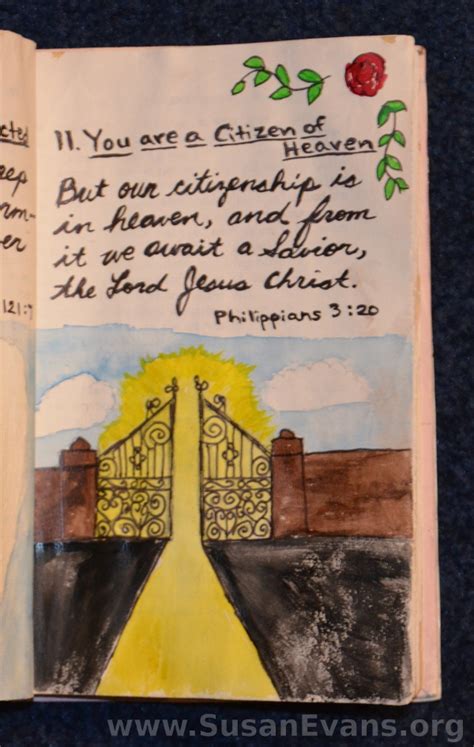 11. You are a Citizen of
Heaven
But our citizenship is
in heaven, and from
it we await a Savior,
the Lord Jesus Christ.
Philippians 3:20
cted
eep
rm-
er
121:7
www.SusanEvans.org